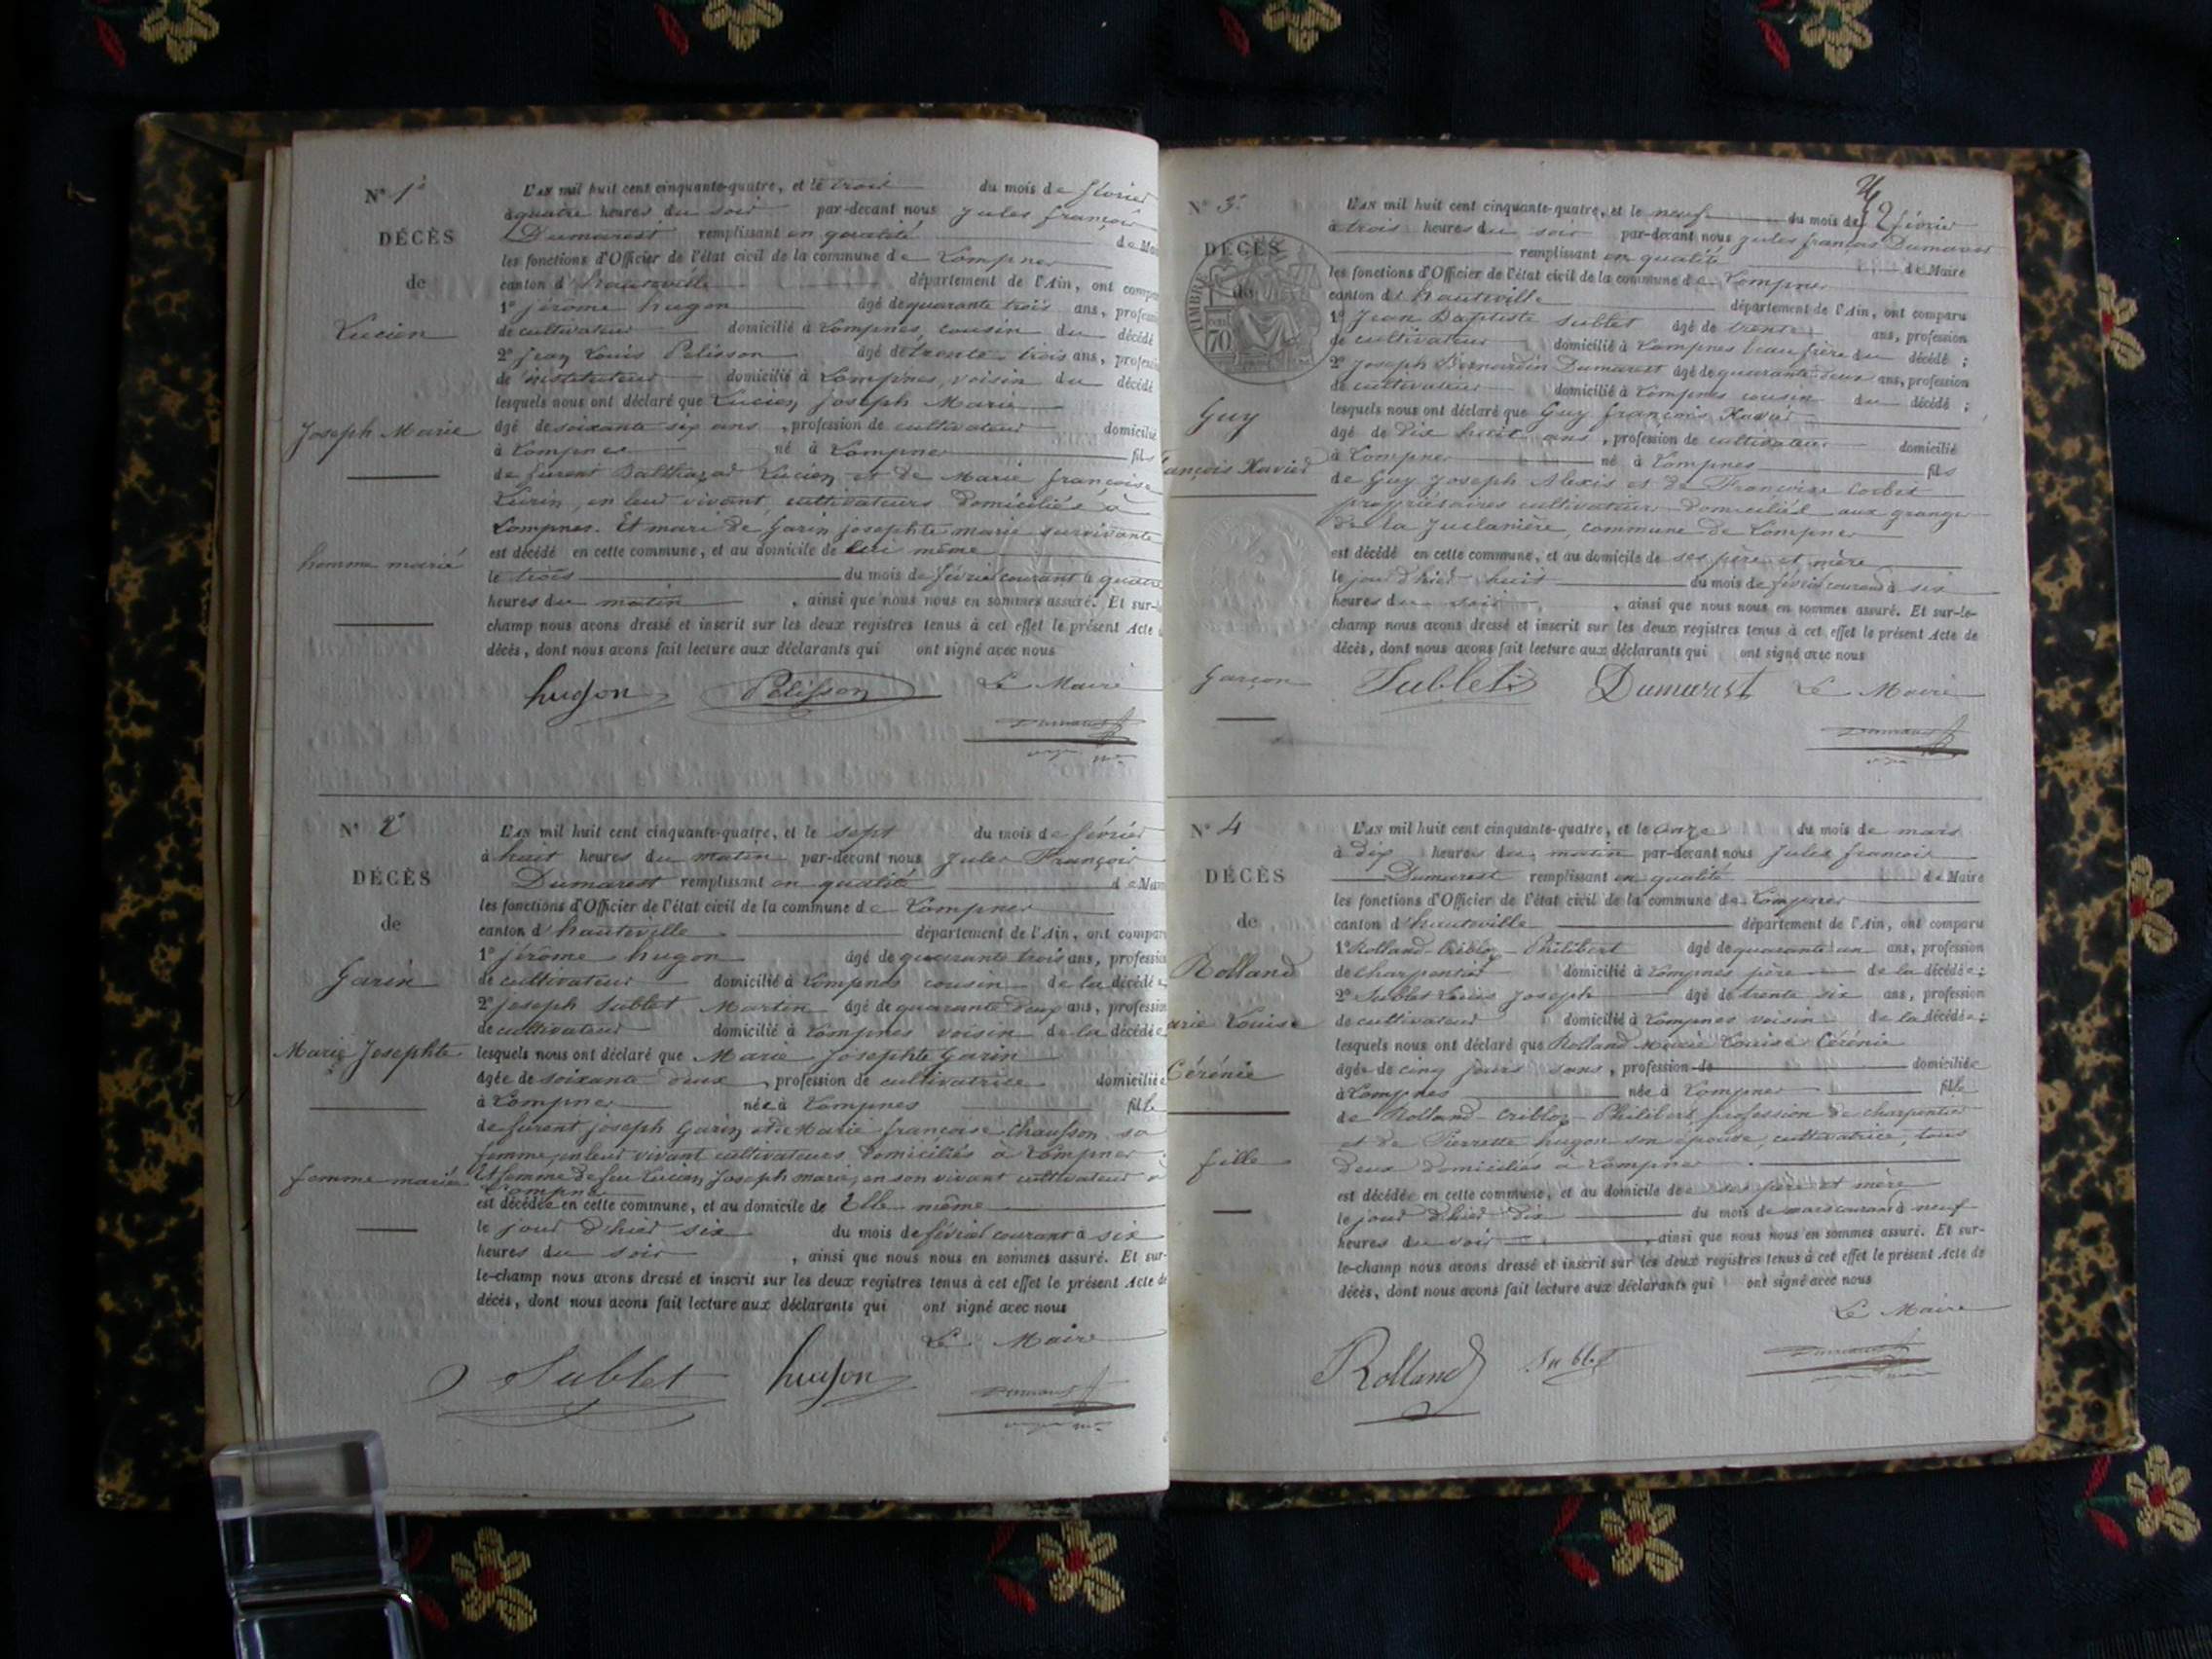 N° 1°
DÉCÈS
de
Lucien
Joseph Marie
homme marié
L'AN mil huit cent cinquante-quatre, et le trois du mois de février
à quatre heures du soir par-devant nous jules françois
Dumarest remplissant en qualité de Mai
les fonctions d'Officier de l'état civil de la commune de Lompnes
canton d'hauteville département de l'Ain, ont compa
1° jérôme hugon âgé de quarante trois ans, profess
de cultivateur domicilié à Lompnes, cousin du décédé
2° jean Louis Pelisson âgé de trente-trois ans, profess
de instituteur domicilié à Lompnes, voisin du décédé
lesquels nous ont déclaré que Lucien joseph Marie
âgé de soixante six ans, profession de cultivateur domicilié
à Lompnes né à Lompnes fils
de furent Balthazad Lucien et de Marie françoise
en leur vivant, cultivateurs domiciliés à
Lompnes. Et mari de Garin josephte marie survivante
est décédé en cette commune, et au domicile de lui même
le trois du mois de février courant à quatre
heures du matin, ainsi que nous nous en sommes assuré. Et sur-le-
champ nous avons dressé et inscrit sur les deux registres tenus à cet effet le présent Acte
décès, dont nous avons fait lecture aux déclarants qui ont signé avec nous
hugon Pelisson Le Maire
Dumarest
N° 2°
DÉCÈS
de
Garin
Marie Josephte
femme mariée
L'AN mil huit cent cinquante-quatre, et le sept du mois de février
à huit heures du matin par-devant nous Jules François
Dumarest remplissant en qualité de Mai
les fonctions d'Officier de l'état civil de la commune de Lompnes
canton d'hauteville département de l'Ain, ont compar
1° jérôme hugon âgé de quarante trois ans, professio
de cultivateur domicilié à Lompnes cousin de la décédée
2° joseph Sublet Martin âgé de quarante deux ans, profession
de cultivateur domicilié à Lompnes voisin de la décédée
lesquels nous ont déclaré que Marie Josephte Garin
âgée de soixante deux, profession de cultivatrice domiciliée
à Lompnes née à Lompnes fille
de furent joseph Garin et de Marie françoise Chausson, sa
femme, en leur vivant cultivateurs domiciliés à Lompnes
Et femme de feu Lucien Joseph marie, en son vivant cultivateur à
Lompnes
est décédée en cette commune, et au domicile de Elle même
le jour d'hier six du mois de février courant à six
heures du soir, ainsi que nous nous en sommes assuré. Et sur-
le-champ nous avons dressé et inscrit sur les deux registres tenus à cet effet le présent Acte de
décès, dont nous avons fait lecture aux déclarants qui ont signé avec nous
Le Maire
Sublet hugon
Dumarest
2
N° 3°
DÉCÈS
de
TIMBRE
70
Guy
ançois Xavier
Garçon
L'AN mil huit cent cinquante-quatre, et le neuf du mois de février
à trois heures du soir par-devant nous jules françois Dumarest
remplissant en qualité de Maire
les fonctions d'Officier de l'état civil de la commune de Lompnes
canton de hauteville département de l'Ain, ont comparu
1° Jean Baptiste Sublet âgé de trente ans, profession
de cultivateur domicilié à Lompnes beau frère du décédé ;
2° Joseph Bernardin Dumarest âgé de quarante-deux ans, profession
de cultivateur domicilié à Lompnes cousin du décédé ;
lesquels nous ont déclaré que Guy françois Xavier
âgé de dix huit ans, profession de cultivateur domicilié
à Lompnes né à Lompnes fils
de Guy Joseph Alexis et de Françoise
propriétaires cultivateurs domiciliés aux granges
de la commune de Lompnes
est décédé en cette commune, et au domicile de ses père et mère
le jour d'hier huit du mois de février courant à six
heures du soir, ainsi que nous nous en sommes assuré. Et sur-le-
champ nous avons dressé et inscrit sur les deux registres tenus à cet effet le présent Acte de
décès, dont nous avons fait lecture aux déclarants qui ont signé avec nous
Sublet Dumarest Le Maire
Dumarest
N° 4
DÉCÈS
de
Rolland
arie Louise
Cérénie
fille
L'AN mil huit cent cinquante-quatre, et le onze du mois de mars
à dix heures du matin par-devant nous Jules françois
Dumarest remplissant en qualité de Maire
les fonctions d'Officier de l'état civil de la commune de Lompnes
canton d'hauteville département de l'Ain, ont comparu
1° Rolland-Cribloz-Philibert âgé de quarante un ans, profession
de charpentier domicilié à Lompnes père de la décédée ;
2° Sublet Louis joseph âgé de trente six ans, profession
de cultivateur domicilié à Lompnes voisin de la décédée ;
lesquels nous ont déclaré que Rolland Marie Louise Cérénie
âgée de cinq jours ans, profession de domiciliée
à Lompnes née à Lompnes fille
de Rolland-Cribloz-Philibert profession de charpentier
et de Pierrette hugon son épouse, cultivatrice, tous
deux domiciliés à Lompnes
est décédée en cette commune, et au domicile de ses père et mère
le jour d'hier dix du mois de mars courant à neuf
heures du soir, ainsi que nous nous en sommes assuré. Et sur-
le-champ nous avons dressé et inscrit sur les deux registres tenus à cet effet le présent Acte de
décès, dont nous avons fait lecture aux déclarants qui ont signé avec nous
Le Maire
Rolland Sublet
Dumarest